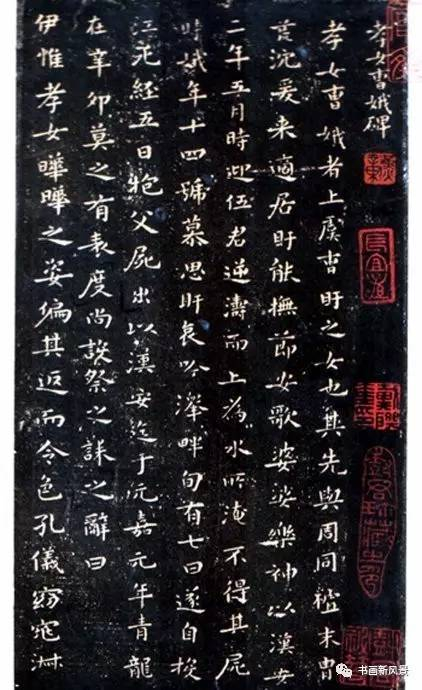 孝女曹娥碑
孝女曹娥者上虞曹盱之女也其先與周同祖末胄
荒沉爰来適居盱能撫節安歌婆娑樂神以漢安
二年五月時迎伍君逆濤而上為水所淹不得其屍
時娥年十四號慕思盱哀吟澤畔旬有七日遂自投
江死經五日抱父屍出以漢安迄于元嘉元年青龍
在辛卯莫之有表度尚設祭之誄之辭曰
伊惟孝女曄曄之姿偏其返而令色孔儀窈窕淑
书画新风景